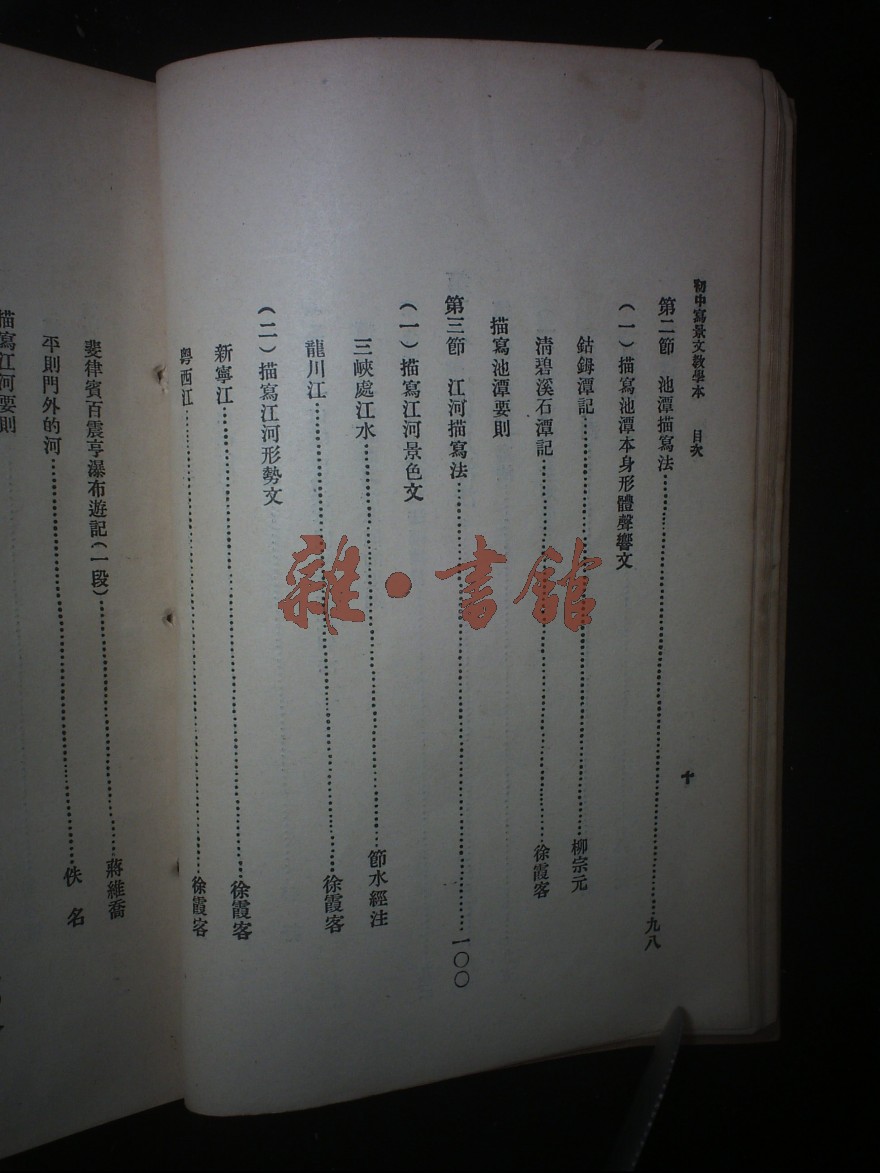 初中寫景文教學本　目次
十
第二節　池潭描寫法……九八
(一)描寫池潭本身形體聲響文
鈷鉧潭記……柳宗元
清碧溪石潭記……徐霞客
描寫池潭要則
第三節　江河描寫法……一〇〇
(一)描寫江河景色文
三峽處江水……節水經注
龍川江……徐霞客
(二)描寫江河形勢文
新寧江……徐霞客
粵西江……徐霞客
斐律賓百震亨瀑布遊記(一段)……蔣維喬
平則門外的河……佚名
描寫江河要則
雜·書館